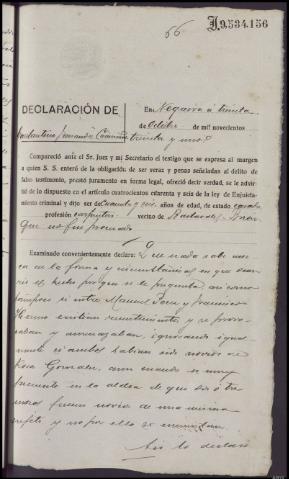 66
J.9,534,156
DECLARACIÓN DE
En Negreira a treinta
de Octubre de mil novecientos
treinta y uno
Compareció ante el Sr. Juez y mí Secretario el testigo que se expresa al margen
a quien S. S. enteró de la obligación de ser veraz y penas señaladas al delito de
falso testimonio, prestó juramento en forma legal, ofreció decir verdad, se le advir-
tió de lo dispuesto en el artículo cuatrocientos cuarenta y seis de la ley de Enjuicia-
miento criminal y dijo ser de cuarenta y seis años de edad, de estado casado
profesión carpintero vecino de
Que no fue procesado
Examinado convenientemente declara: Que nada sabe acer
ca de la forma y circunstancias en que ocurrie
el hecho porque se le pregunta, asi como
tampoco si entre Manuel y Francisco
existian resentimientos y se provo
caban y amenazaban, ignorando igual
mente si ambos habian sido novios de
Rosa Gonzalez, aun cuando es muy
frecuente en la aldea de que dos o tres
mozos fuesen novios de una misma
y no por ello se
Asi lo declara